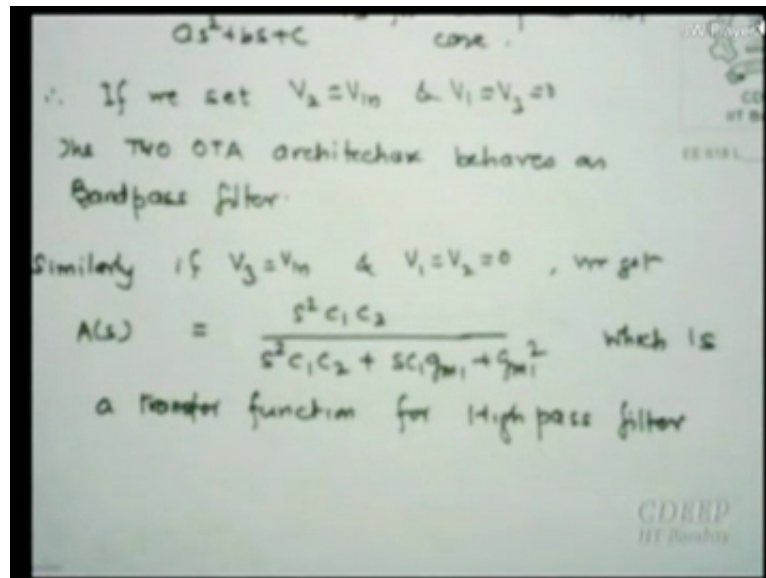 as²+bs+c case.
∴ If we set V₂ = Vin & V₁ = V₃ = 0
The TWO OTA architechax behaves as
Bandpass filter.
Similarly if V₃ = Vin & V₁ = V₂ = 0, we get
A(s) = s² C₁ C₂ / s² C₁ C₂ + s C₁ gm₁ + gm₁² which is
a function for High pass filter
CDEEP
IIT Bombay